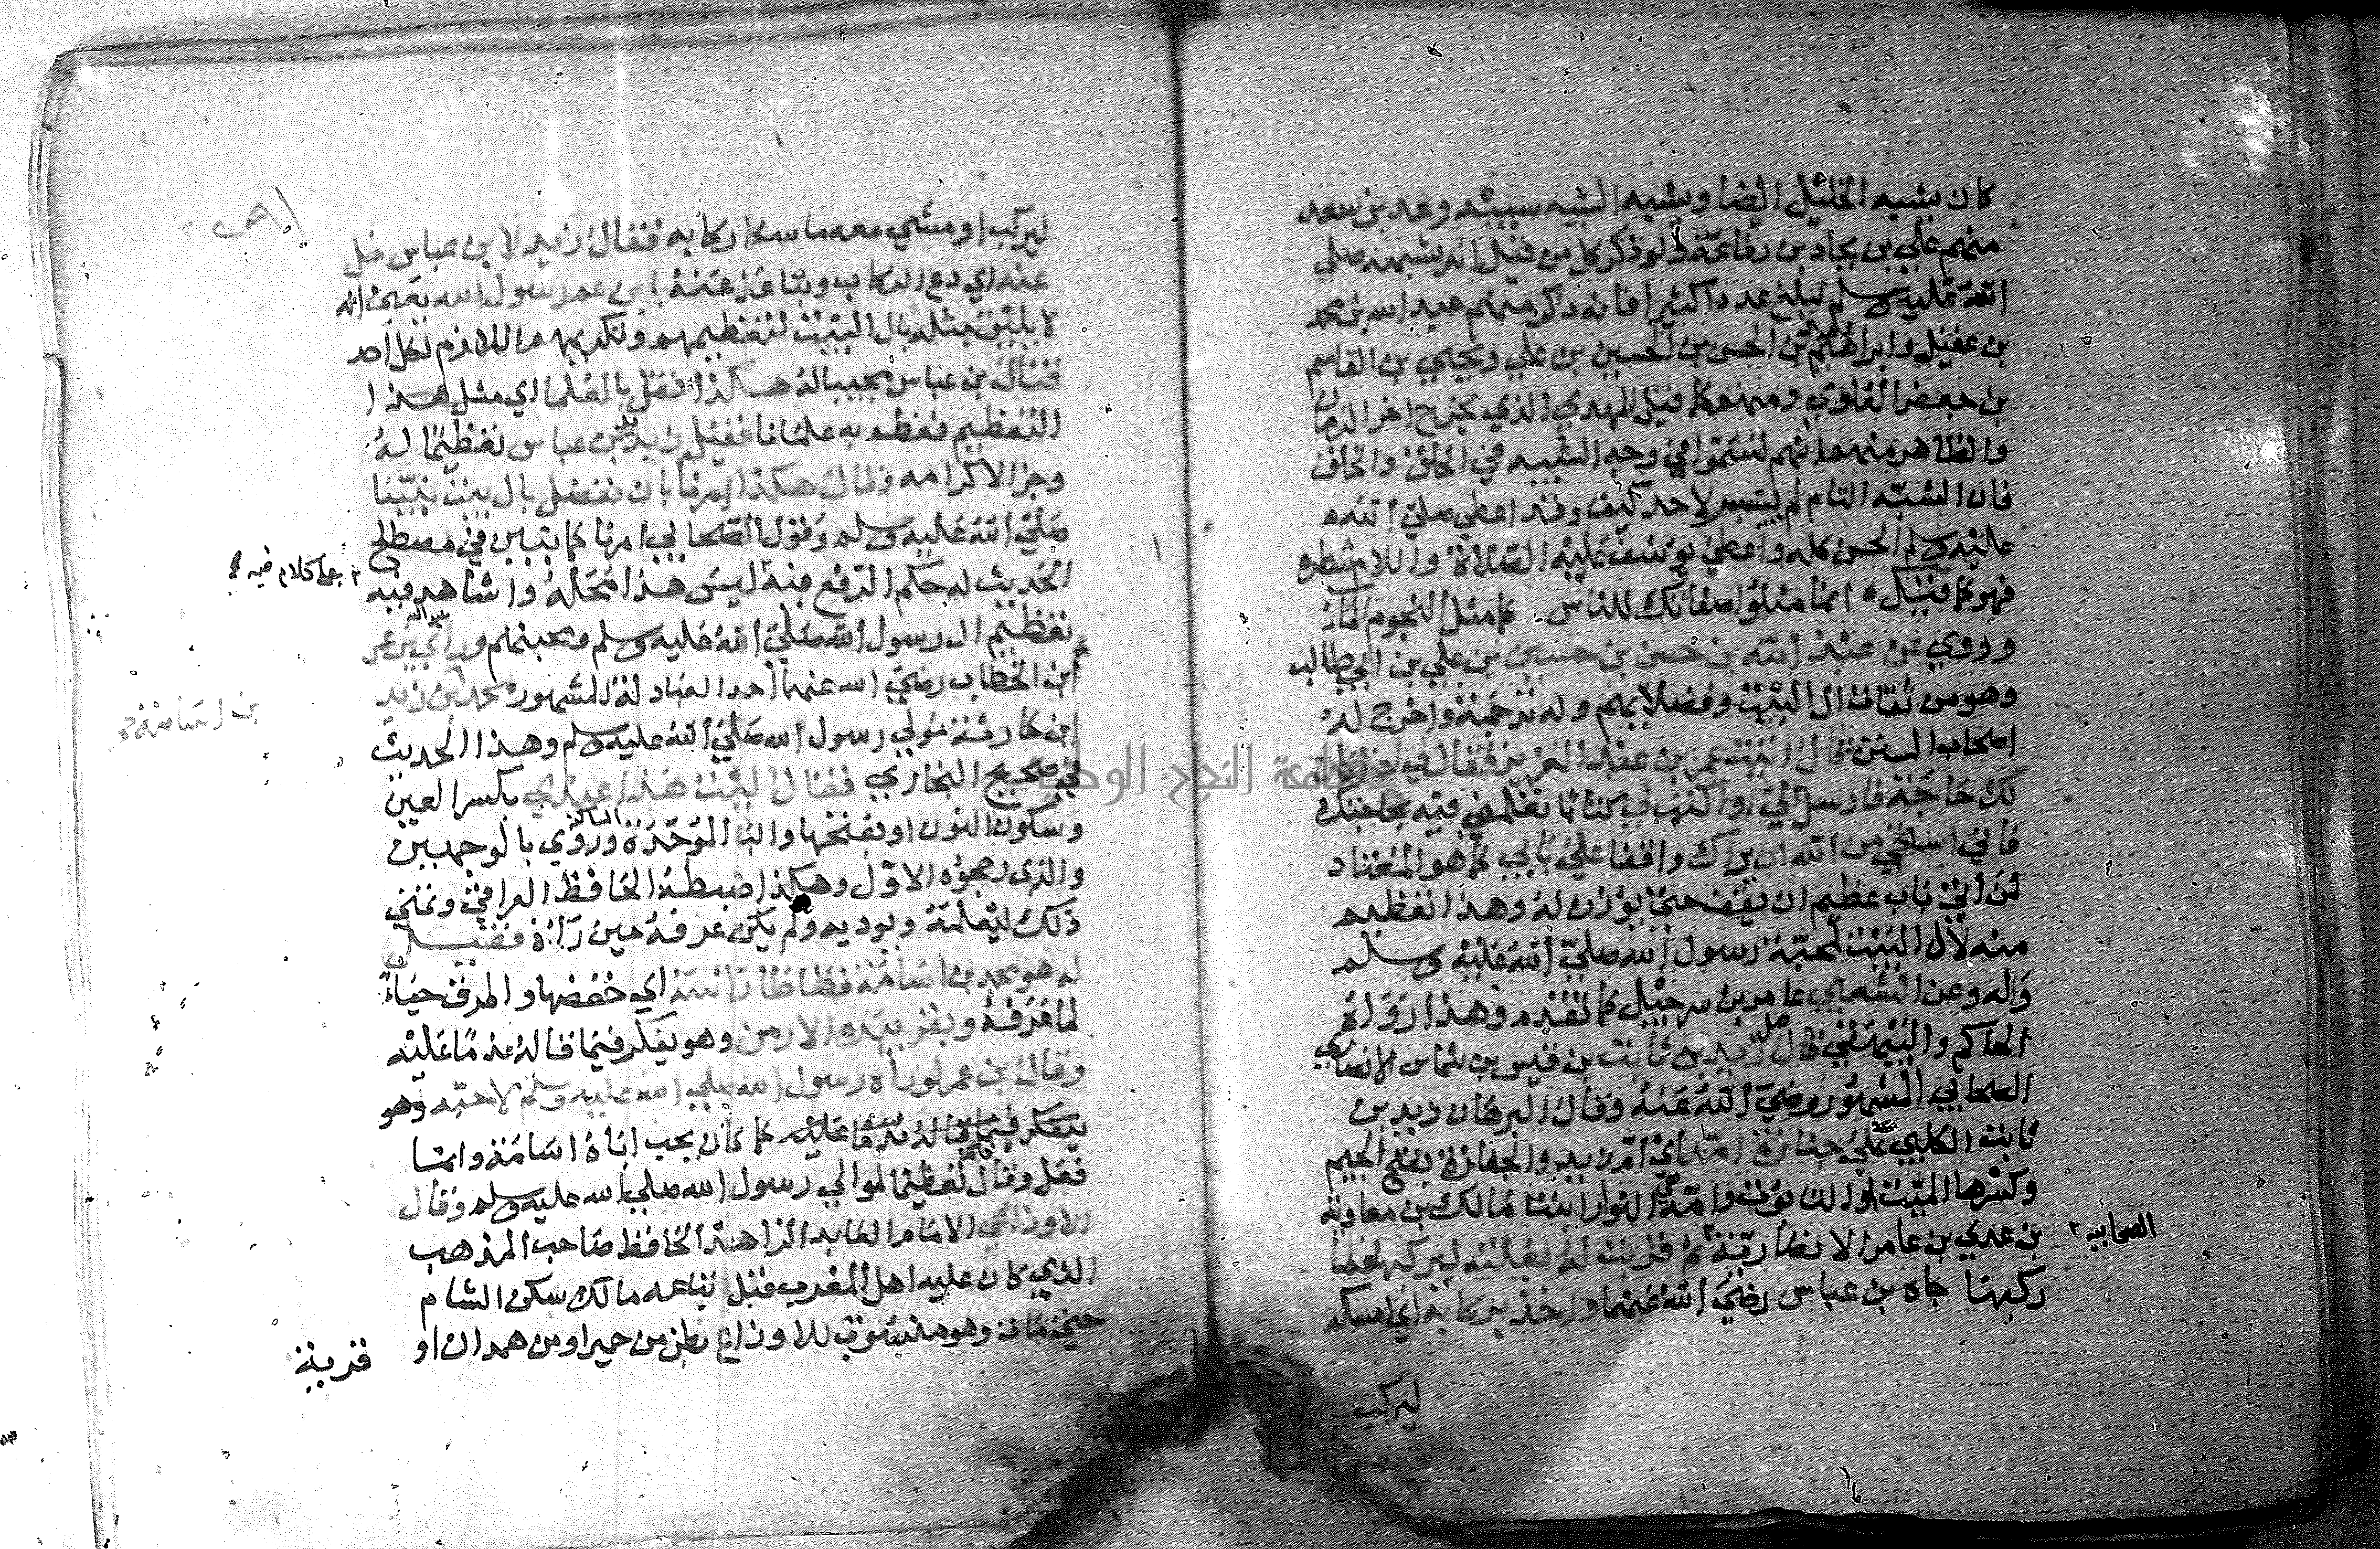 كان يشبه الخليل ايضا ويشبه الشبه سببه وعد بن سعد
منهم علي بن بجاد بن رفاعة ولو ذكر كل من قيل انه يشبهه صلي
الله عليه وسلم لبلغ عددا كثيرا فانه ذكر منهم عبد الله بن محمد
بن عقيل وابراهيم بن الحسن بن الحسين بن علي ويحيي بن القاسم
بن جعفر ومنهم كما قيل المهدي الذي يخرج اخر الزمان
والظاهر منهم انهم في وجه الشبه في الخلق والخلق
فان الشبه التام لم يتيسر لاحد كيف وقد اعطي صلي الله
عليه وسلم الحسن كله واعطي يوسف عليه الصلاة والسلام شطره
فهو كما قيل انما مثلوا صفاتك للناس كما مثل النجوم الماء
وروي عن عبد الله بن حسن بن حسين بن علي بن ابي طالب
وهو من ثقات ال البيت وفضلايهم وله ترجمة واخرج له
اصحاب السنن قال اتيت عمر بن عبد العزيز فقال لي اذا كانت
لك حاجة فارسل الي او اكتب لي كتابا تعلمني فيه بحاجتك
فاني استحي من الله ان يراك واقفا علي بابي كما هو المعتاد
لمن اتي باب عظيم ان يقف حتي يؤذن له وهذا تعظيم
منه لال البيت لمحبة رسول الله صلي الله عليه وسلم
واله وعن الشعبي عامر بن سرحبيل كما تقدم وهذا رواه
الحاكم والبيهقي قال صلي زيد بن ثابت بن قيس بن شماس الانصاري
الصحابي المشهور رضي الله عنه وقال البرهان زيد بن
ثابت الكلبي علي جنازة امه اي ام زيد والجنازة بفتح الجيم
وكسرها الميت او النوار ابنت مالك بن معاوية
بن عدي بن عامر الانصارية ثم قربت له بغلته ليركبها فلما
الصحابيه
ركبها جاه بن عباس رضي الله عنهما واخذ بركابه اي امسكه
ليركب
ليركب او مشي معه ماسكا ركابه فقال زيد لابن عباس خل
عنه اي دع الركاب وتباعد عنه يا بن عم رسول الله يعني انه
لا يليق مثله بال البيت لتعظيمهم وتكريمهم اللازم لكل احد
فقال بن عباس مجيبا له هكذا نفعل بالعلما اي مثل هذا
التعظيم نعظم به علمانا فقبل زيد يد بن عباس تعظيما له
وجزا لاكرامه وقال هكذا امرنا بان نفعل بال بيت نبينا
صلي الله عليه وسلم وقول الصحابي امرنا كما بين في مصطلح
الحديث له حكم الرفع فيه ليس هذا محله والشاهد فيه
علي كلام فيه
تعظيم ال رسول الله صلي الله عليه وسلم ومحبتهم وراي عبد الله بن عمر
ابن الخطاب رضي الله عنهما احد العبادلة المشهور محمد بن زيد
بن اسامة
ابن حارثة مولي رسول الله صلي الله عليه وسلم وهذا الحديث
في صحيح البخاري فقال ليت هذا عندي بكسر العين
وسكون النون او بفتحها والبا الموحدة الساكنة وروي بالوجهين
والذي رجحوه الاول وهكذا ضبطه الحافظ العراقي وتمني
ذلك ليعلمه ويوديه ولم يكن عرفه حين راه فقيل
له هو محمد بن اسامة فطاطا راسه اي خفضها واطرق حياء
لما عرفه ونقر بيده الارض وهو يفكر فيما قاله
وقال بن عمر لو راه رسول الله صلي الله عليه وسلم لاحبه وهو
يتفكر فيما قاله كما كان يحب اباه اسامة وانما
فعل وقال تعظيما لموالي رسول الله صلي الله عليه وسلم وقال
الاوزاعي الامام العابد الزاهد الحافظ صاحب المذهب
الذي كان عليه اهل المغرب قبل اتباعه مالك سكن الشام
حتي مات وهو منسوب للاوزاع بطن من حمير او من همدان او
قرية
جامعة النجاح الوطنية